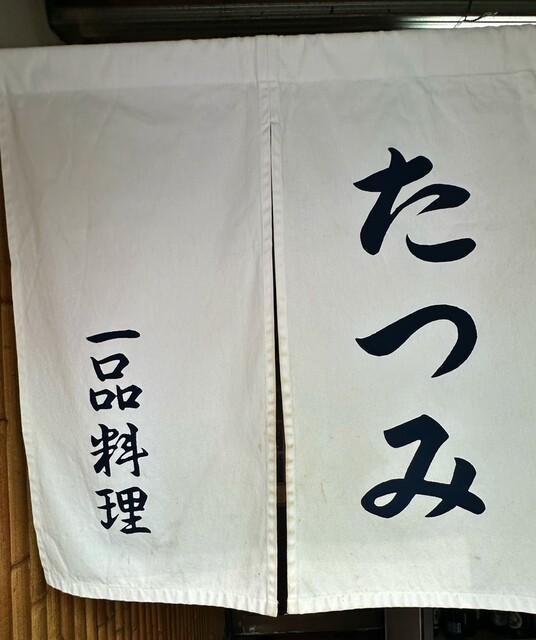 たつみ
一品料理